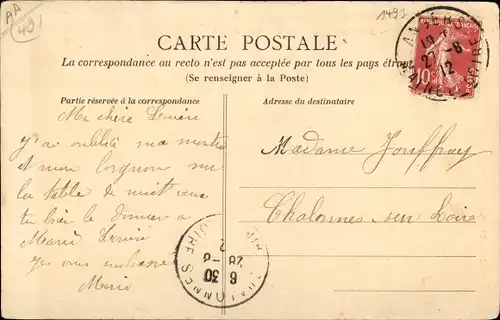 AA
491
1491
CARTE POSTALE
La correspondance au recto n'est pas acceptée par tous les pays étran
(Se renseigner à la Poste)
Partie réservée à la correspondance
Adresse du destinataire
Ma chère
J'ai oublié ma montre
et mon lorgnon sur
la table de nuit
bien le donner à
Marie
Je vous embrasse
Marie
Madame Jouffray
Chalonnes sur Loire
ANGERS
27-6
12
MAINE ET LOIRE
10
CHALONNES
LOIRE
6 30
28-6